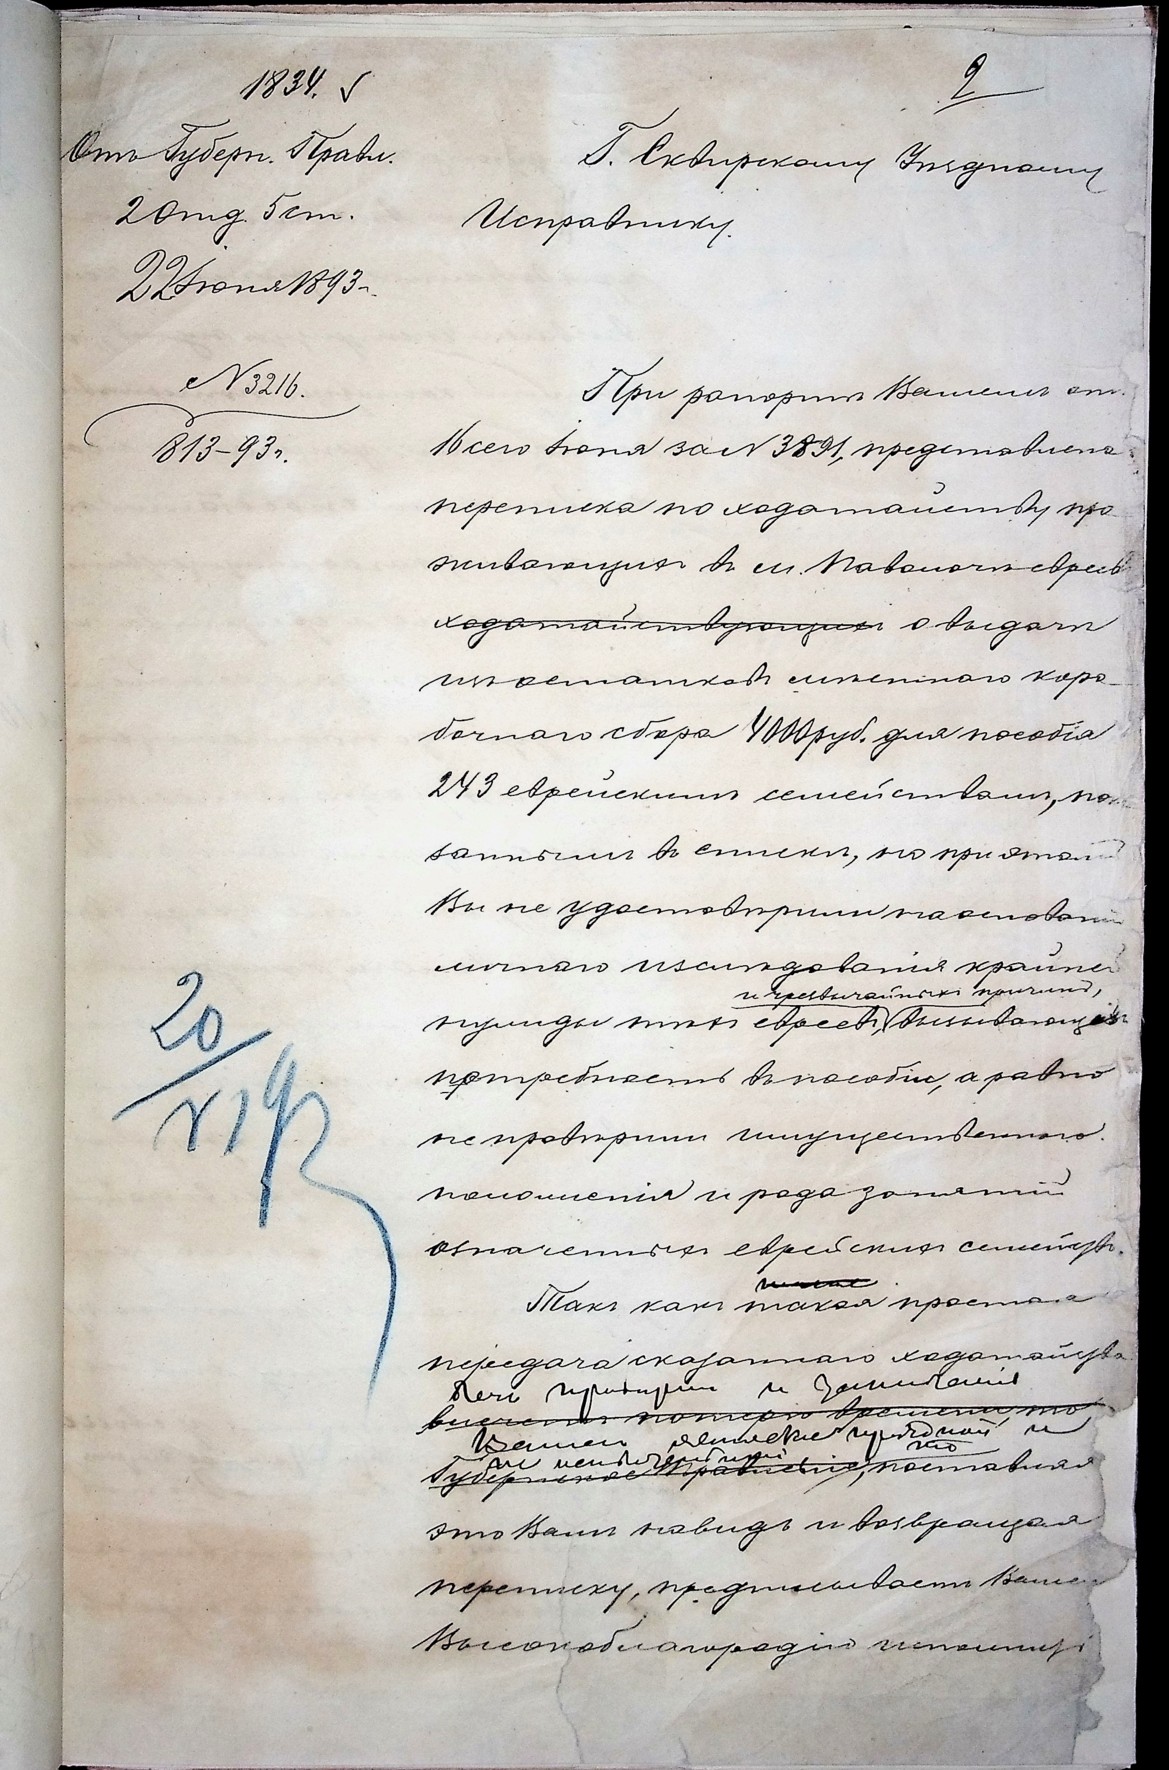 1834.
2
Отъ Губерн. Правл.
2 отд. 5 ст.
22 Іюня 1893 г.
№ 3216.
813-93 г.
Г. Сквирскому Уѣздному
Исправнику.
При рапортѣ Вашемъ отъ
16 сего Іюня за № 3891, представлена
переписка по ходатайству про
живающихъ въ м. Паволочи евреевъ
ходатайствующихъ о выдачѣ
изъ остатковъ мѣстнаго коро
бочнаго сбора 4000 руб. для пособія
243 еврейскимъ семействамъ, пока
заннымъ въ спискѣ, но при этомъ
Вы не удостовѣрили на основаніи
личнаго изслѣдованія крайней
и чрезвычайныхъ причинъ,
нужды тѣхъ евреевъ, вызывающихъ
потребность въ пособіи, а равно
не провѣрили имущественнаго
положенія и рода занятій
означенныхъ еврейскихъ семействъ.
Такъ какъ такая простая
передача сказаннаго ходатайства
безъ провѣрки и заключенія
влечетъ потерю времени, то
Вашего
Губернское Правленіе, поставляя
это Вамъ на видъ и возвращая
переписку, предписываетъ Вашему
Высокоблагородію исполнить
20